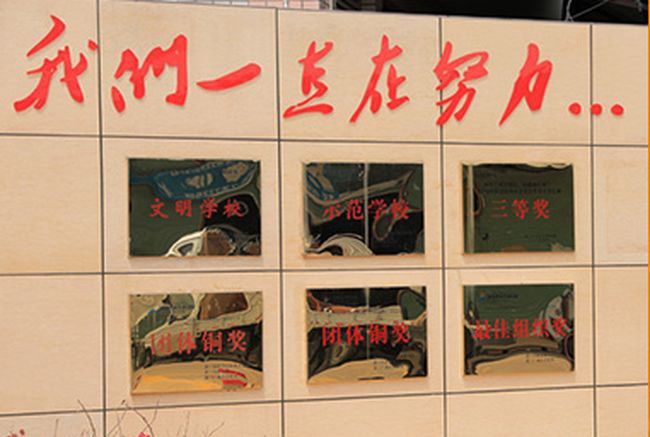 我們一直在努力...
文明学校 示范学校 三等奖
团体铜奖 团体铜奖 最佳组织奖